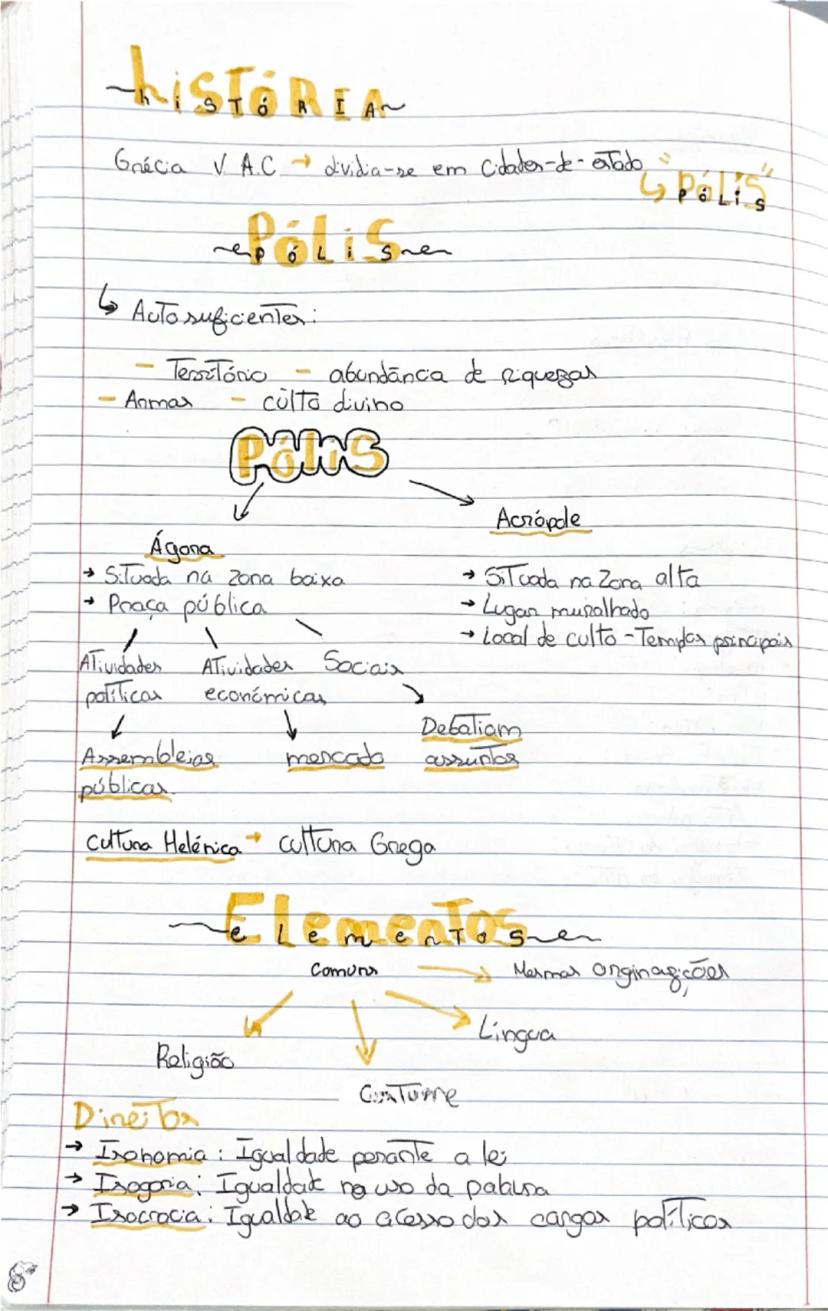 História
História
Grécia V A.C → dividia-se em Cidades-de-estado
↳ "Pólis"
Pólis
Pólis
↳ Autosuficientes:
- Território - abundância de riquezas
- Armas - culto divino
Pólis
Acrópole
Ágora
→ Situada na zona baixa → Situada na Zona alta
→ Praça pública → Lugar muralhado
→ Local de culto - Templos principais
Atividades Atividades Sociais
políticas económicas
Debatiam
Assembleias mercado assuntos
públicas.
Cultura Helénica → Cultura Grega
Elementos
Elementos
Comuns → Mesmas
Língua
Religião
Costume
Direitos
→ Isonomia: Igualdade perante a lei
→ Isogoria: Igualdade no uso da palavra
→ Isocracia: Igualdade ao acesso dos cargos políticos